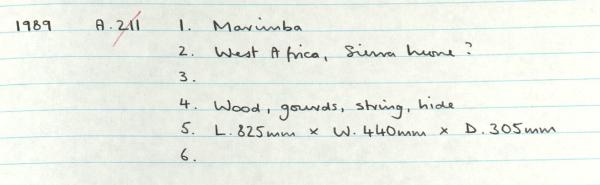 1989 A.211 1. Marimba
2. West Africa, Sierra Leone?
3.
4. Wood, gourds, string, hide
5. L.825mm x W.440mm x D.305mm
6.